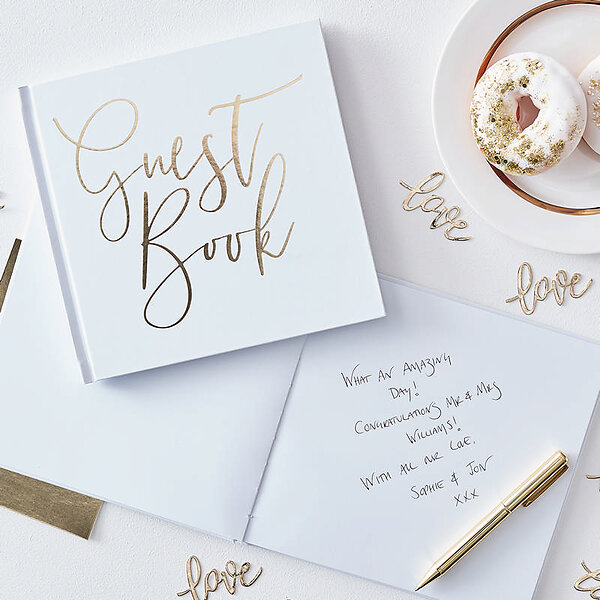 Guest
Book
love
love
WHAT AN AMAZING
DAY!
CONGRATULATIONS MR & MRS
WILLIAMS!
WITH ALL OUR LOVE,
SOPHIE & JON
XXX
love
love